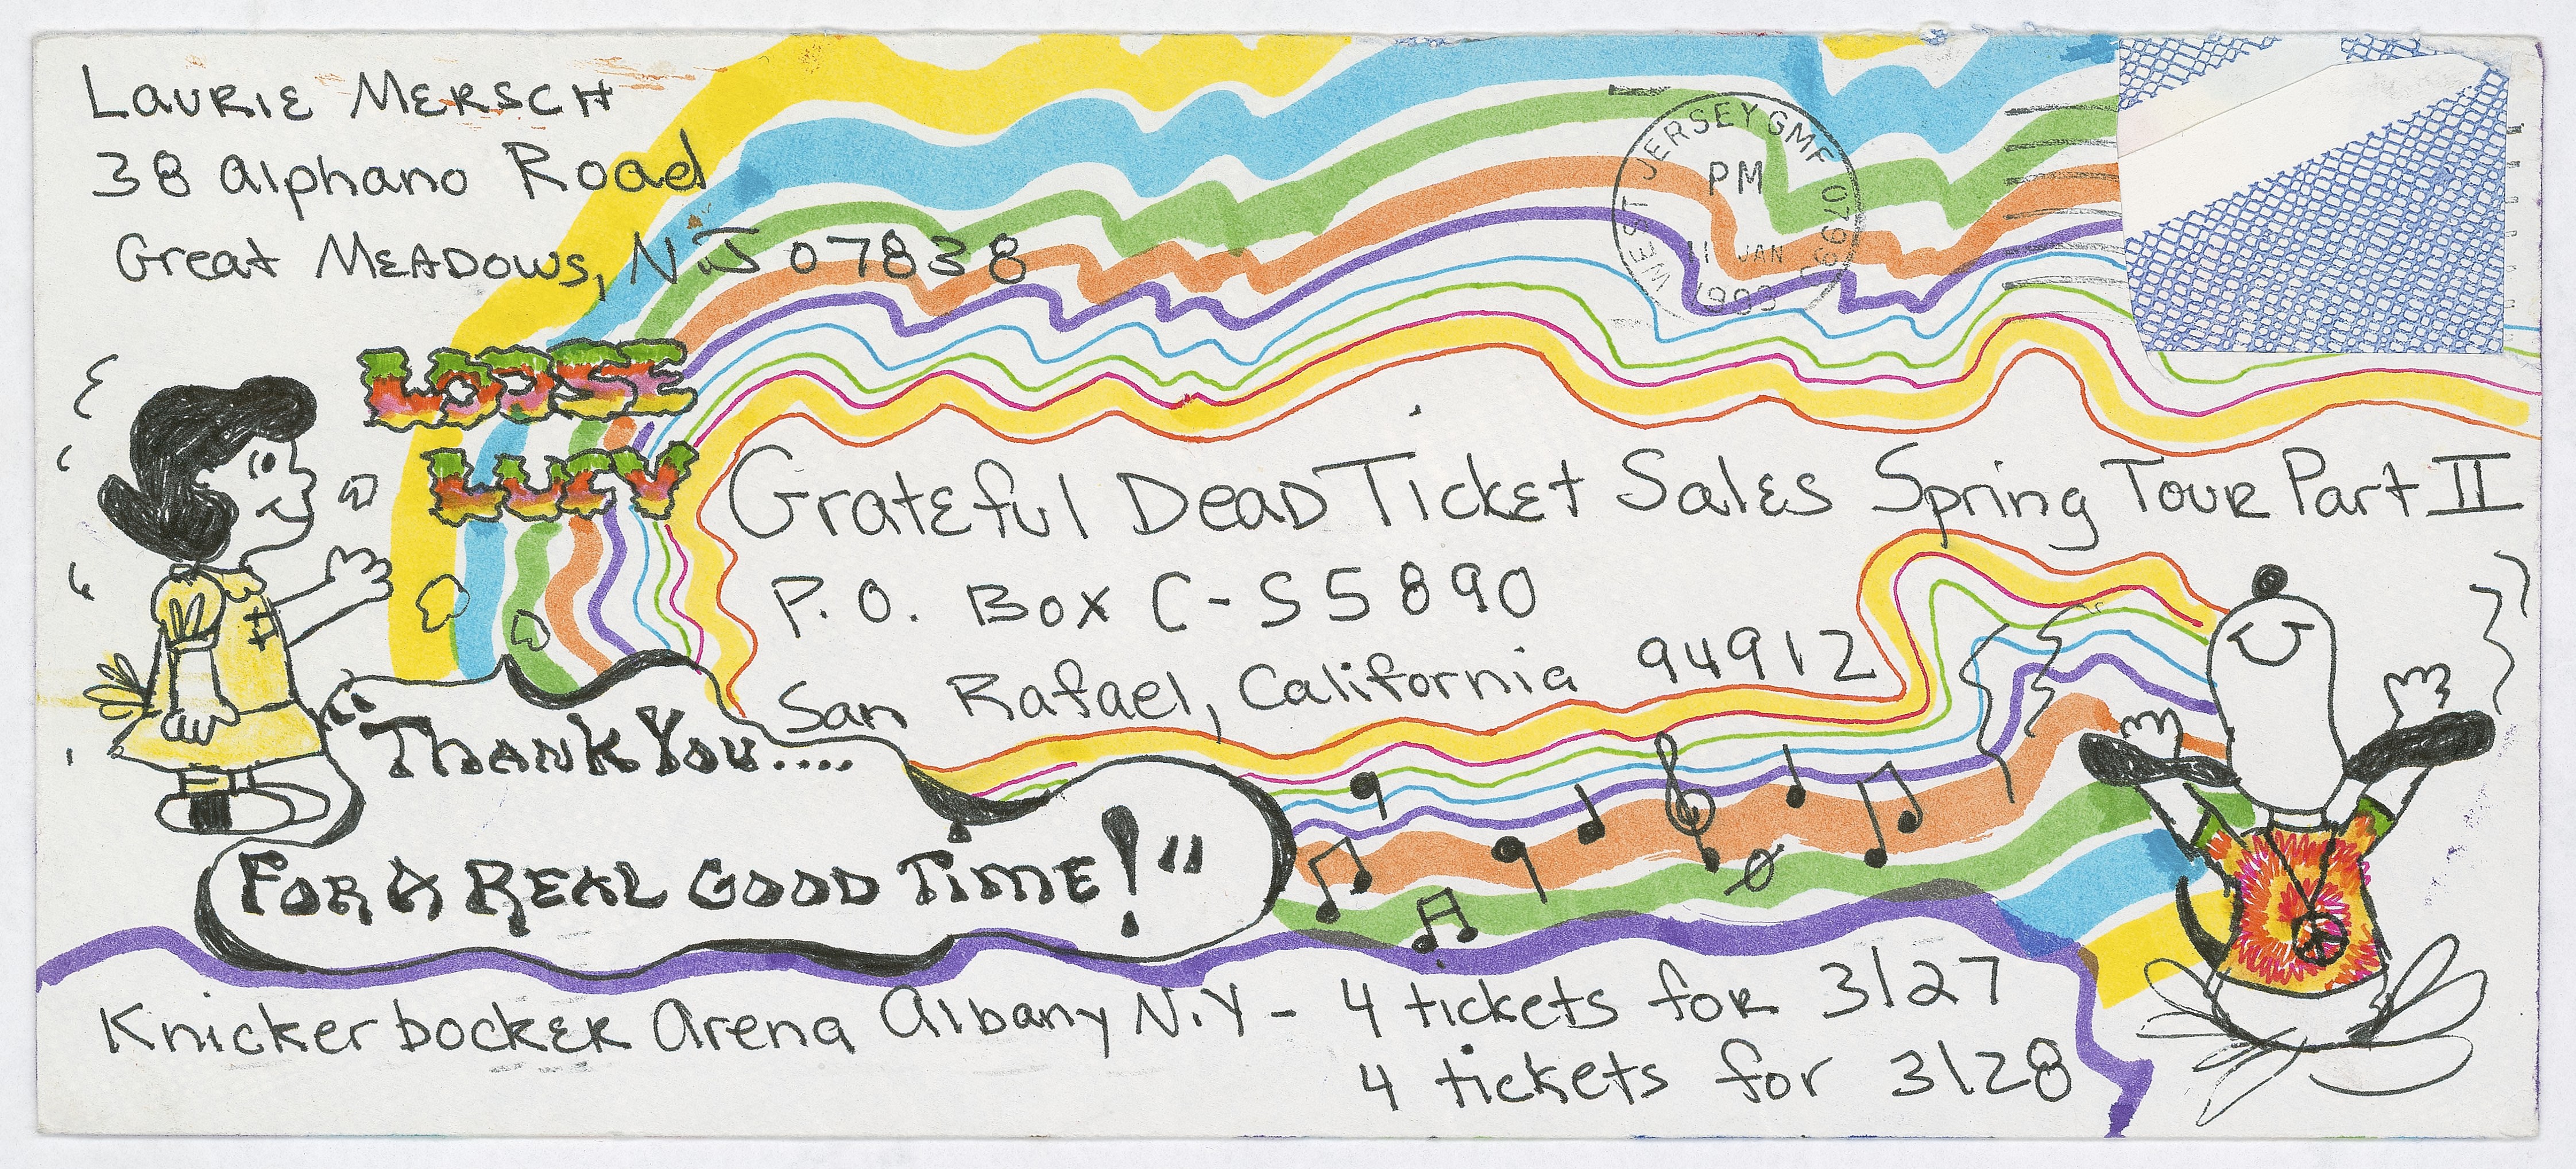 Laurie Mersch
38 Alphano Road
Great Meadows, N.J 07838
WEST JERSEY GMF 079
PM
11 JAN
1993
LOOSE
LUCY
Grateful Dead Ticket Sales Spring Tour Part II
P.O. Box C-S5890
San Rafael, California 94912
"Thank You....
For A Real Good Time!"
Knickerbocker Arena Albany N.Y - 4 tickets for 3/27
4 tickets for 3/28